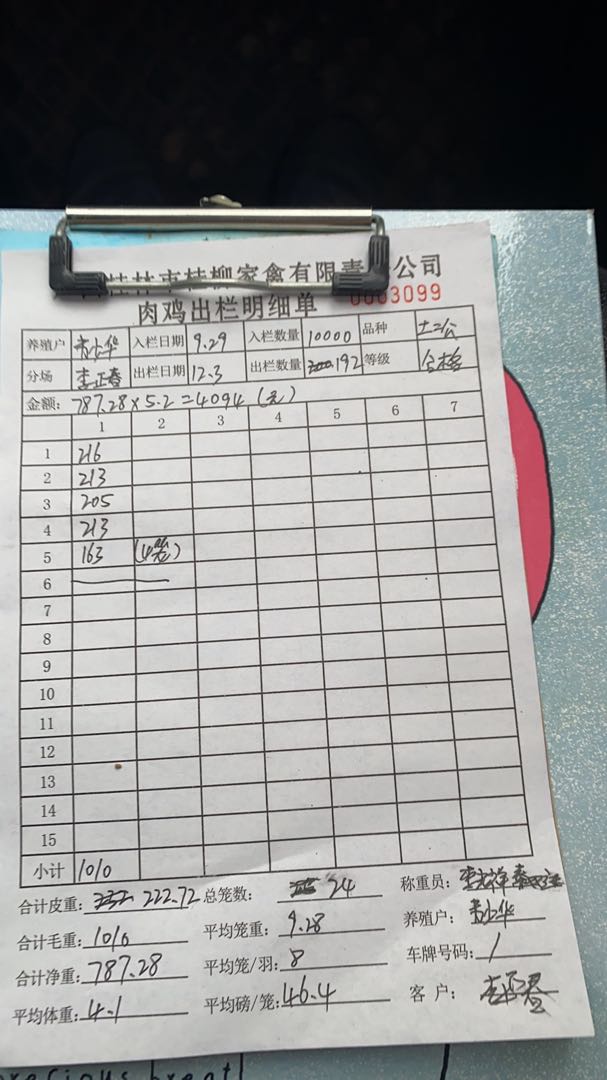 桂林市桂柳家禽有限责公司
肉鸡出栏明细单 0003099
养殖户 入栏日期 9.29 入栏数量 10000 品种 土二公
分场 李正春 出栏日期 12.3 出栏数量 192 等级 合格
金额: 787.28×5.2=4094(元)
1 2 3 4 5 6 7
1 216
2 213
3 205
4 213
5 163 (4笼)
6
7
8
9
10
11
12
13
14
15
小计 1010
合计皮重: 222.72 总笼数: 24 称重员:
合计毛重: 1010 平均笼重: 9.28 养殖户:
合计净重: 787.28 平均笼/羽: 8 车牌号码: /
平均体重: 4.1 平均磅/笼: 46.4 客户: